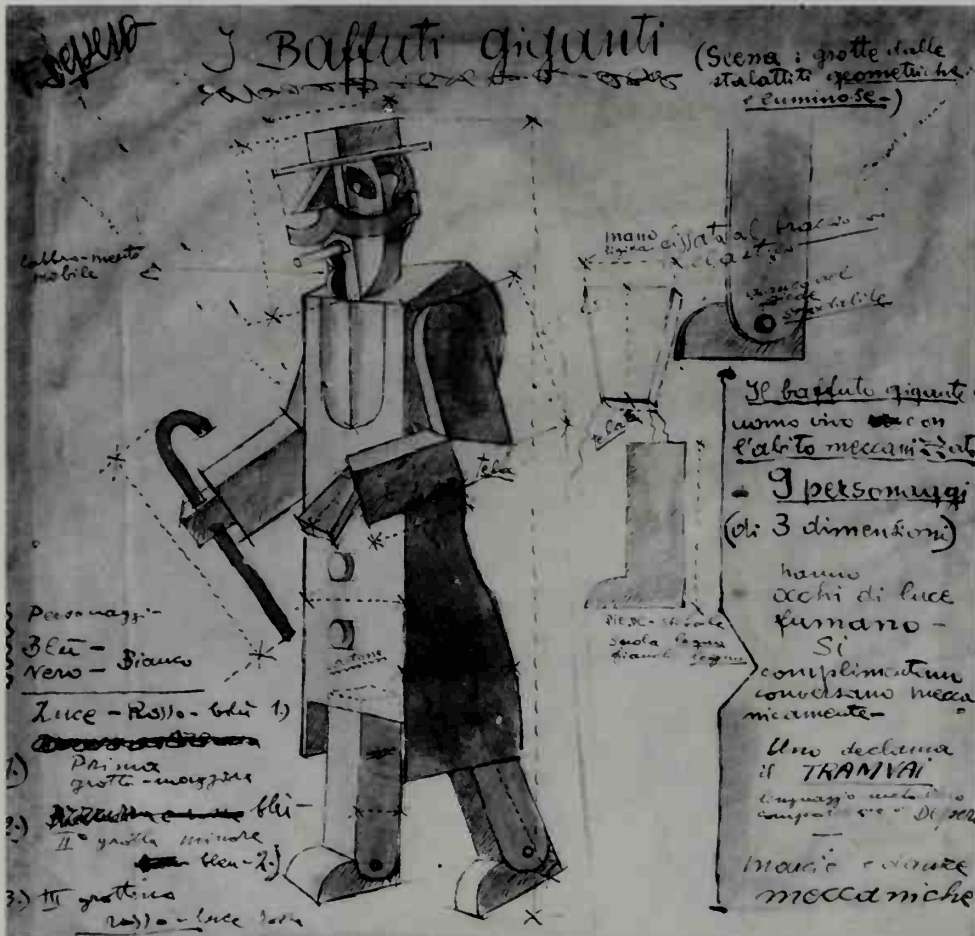 Depero
I Baffuti giganti
(Scena: grotte dalle
stalattiti geometriche
e luminose-)
labbro-mento
mobile
mano
fissata al braccio
elastico
piede
snodabile
tela
tela
suola legno
fianchi legno
Il baffuto gigante
uomo vivo con
l'abito meccanizzato
- 9 personaggi
(di 3 dimensioni)
hanno
occhi di luce
fumano -
Si
complimentano
conversano mecca
nicamente-
Uno declama
il TRAMVAI
linguaggio
marcie e danze
meccaniche
Personaggi-
Blù -
Nero - Bianco
Luce - Rosso - blù 1)
1.) Prima
grotta - maggiore
2.) blù -
II° grotta minore
bleu - 2.)
3.) III grottino
rosso - luce rosa